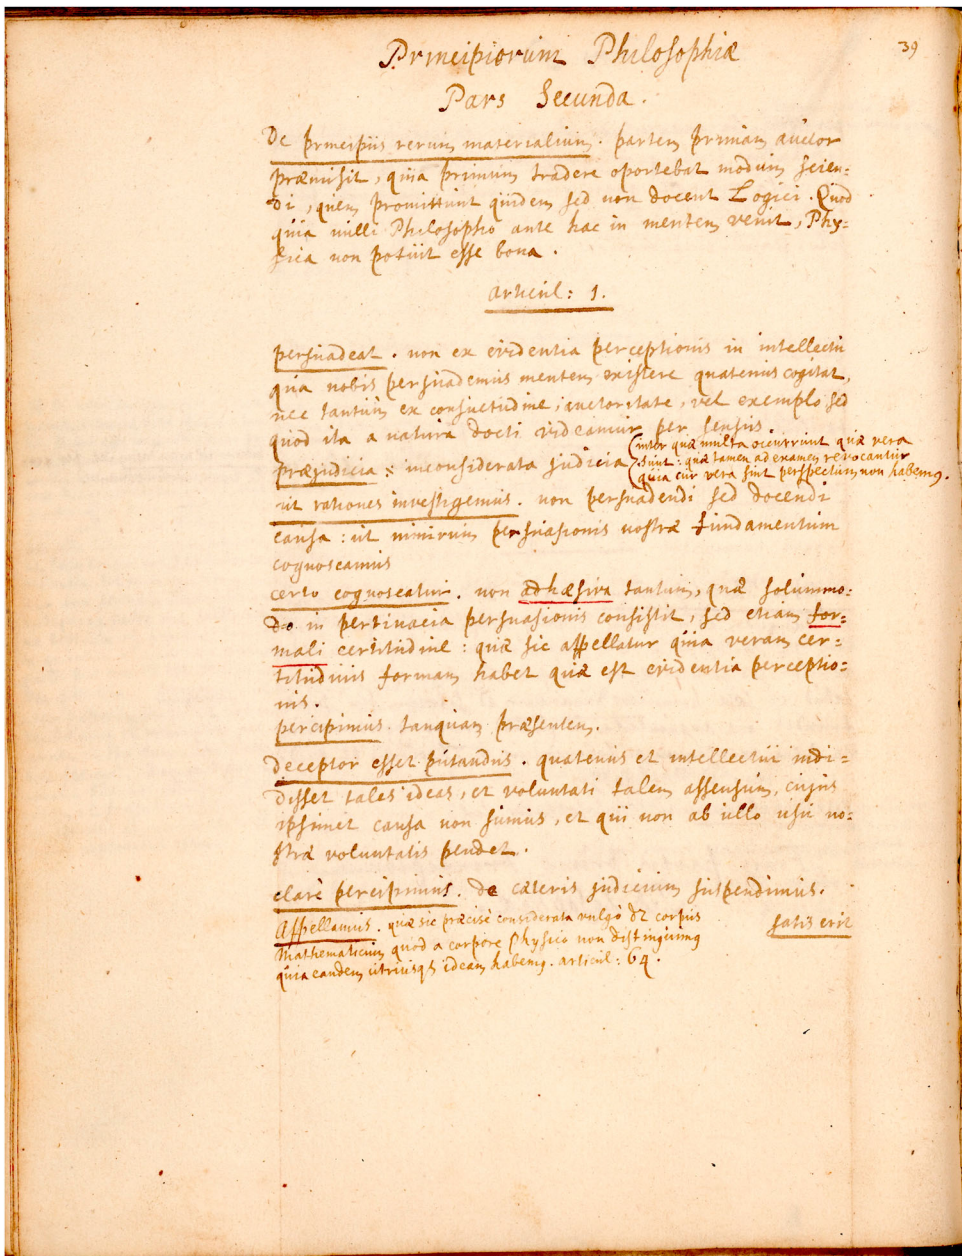 39
Principiorum Philosophiæ
Pars Secunda.
De principiis rerum materialium. partem primam auctor
præmisit, quia primum tradere oportebat modum scien-
di, quem promittunt quidem sed non docent Logici. Quod
quia nulli Philosopho ante hac in mentem venit, Phy-
sica non potuit esse bona.
articul: 1.
persuadeat. non ex evidentia perceptionis in intellectu
qua nobis persuademus mentem existere quatenus cogitat,
nec tantum ex consuetudine, auctoritate, vel exemplo sed
quod ita a natura docti videamur per sensus.
præjudicia: inconsiderata judicia (inter quæ multa occurrunt quæ vera
sunt: quæ tamen ad examen revocantur
quia cur vera sint perspectum non habemus.
ut rationes investigemus. non persuadendi sed docendi
causa: ut nimirum persuasionis nostræ fundamentum
cognoscamus
certo cognoscatur. non adhæsiva tantum, quæ solummo-
do in pertinacia persuasionis consistit, sed etiam for-
mali certitudine: quæ sic appellatur quia veram cer-
titudinis formam habet quæ est evidentia perceptio-
nis.
percipimus tanquam præsentem.
deceptor esset putandus. quatenus et intellectui indi-
disset tales ideas, et voluntati talem assensum, cujus
ipsimet causa non sumus, et qui non ab ullo usu no-
stræ voluntatis pendet.
clarè percipimus. de cæteris judicium suspendimus.
Appellamus. quæ sic præcisè considerata vulgò dr corpus
Mathematicum quod a corpore Physico non distinguimus
quia eandem utriusq ideam habemus. articul: 64.
satis erit